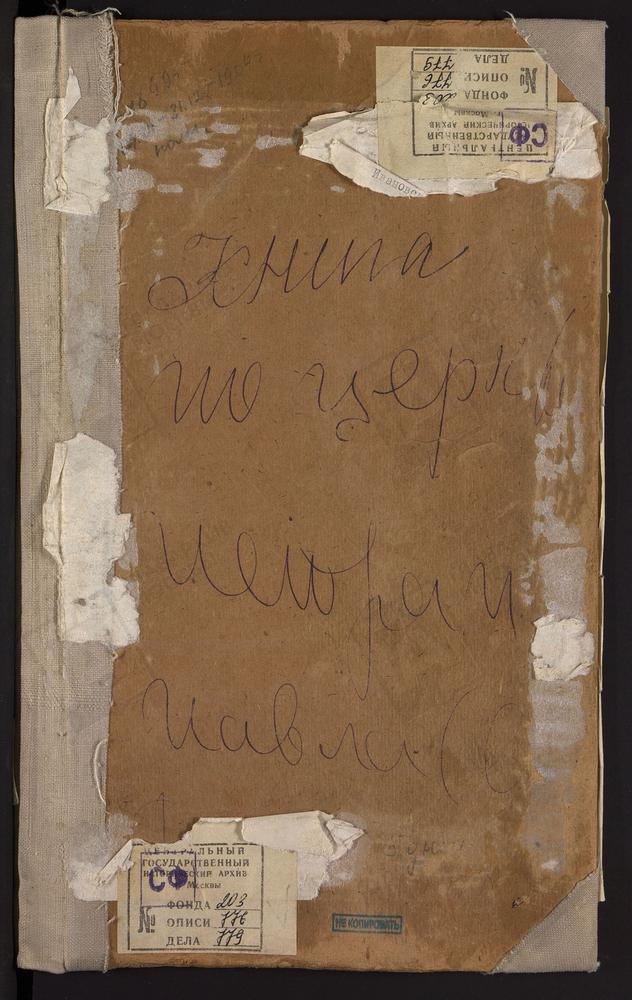 ЦЕНТРАЛЬНЫЙ
ГОСУДАРСТВЕННЫЙ
ИСТОРИЧЕСКИЙ АРХИВ
г. Москвы
СФ
№
ФОНДА 203
ОПИСИ 776
ДЕЛА 779
Книга
по церкви
Петра и
Павла (
ЦЕНТРАЛЬНЫЙ
ГОСУДАРСТВЕННЫЙ
ИСТОРИЧЕСКИЙ АРХИВ
г. Москвы
СФ
№
ФОНДА 203
ОПИСИ 776
ДЕЛА 779
НЕ КОПИРОВАТЬ